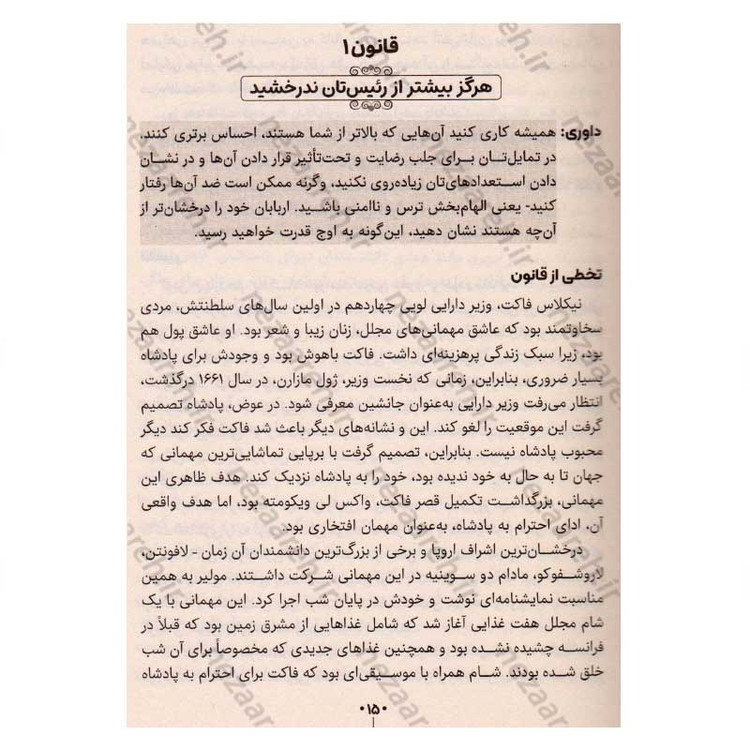 قانون ۱
هرگز بیشتر از رئیس‌تان ندرخشید
داوری: همیشه کاری کنید آن‌هایی که بالاتر از شما هستند، احساس برتری کنند.
در تمایل‌تان برای جلب رضایت و تحت‌تأثیر قرار دادن آن‌ها و در نشان
دادن استعدادهای‌تان زیاده‌روی نکنید، وگرنه ممکن است ضد آن‌ها رفتار
کنید- یعنی الهام‌بخش ترس و ناامنی باشید. اربابان خود را درخشان‌تر از
آن‌چه هستند نشان دهید، این‌گونه به اوج قدرت خواهید رسید.
تخطی از قانون
نیکلاس فاکت، وزیر دارایی لویی چهاردهم در اولین سال‌های سلطنتش، مردی
سخاوتمند بود که عاشق مهمانی‌های مجلل، زنان زیبا و شعر بود. او عاشق پول هم
بود، زیرا سبک زندگی پرهزینه‌ای داشت. فاکت باهوش بود و وجودش برای پادشاه
بسیار ضروری، بنابراین، زمانی که نخست وزیر، ژول مازارن، در سال ۱۶۶۱ درگذشت،
انتظار می‌رفت وزیر دارایی به‌عنوان جانشین معرفی شود. در عوض، پادشاه تصمیم
گرفت این موقعیت را لغو کند. این و نشانه‌های دیگر باعث شد فاکت فکر کند دیگر
محبوب پادشاه نیست. بنابراین، تصمیم گرفت با برپایی تماشایی‌ترین مهمانی که
جهان تا به حال به خود ندیده بود، خود را به پادشاه نزدیک کند. هدف ظاهری این
مهمانی، بزرگداشت تکمیل قصر فاکت، واکس لی ویکومته بود، اما هدف واقعی
آن، ادای احترام به پادشاه، به‌عنوان مهمان افتخاری بود.
درخشان‌ترین اشراف اروپا و برخی از بزرگ‌ترین دانشمندان آن زمان - لافونتن،
لاروشفوکو، مادام دو سوینیه در این مهمانی شرکت داشتند. مولیر به همین
مناسبت نمایشنامه‌ای نوشت و خودش در پایان شب اجرا کرد. این مهمانی با یک
شام مجلل هفت غذایی آغاز شد که شامل غذاهایی از مشرق زمین بود که قبلاً در
فرانسه چشیده نشده بود و همچنین غذاهای جدیدی که مخصوصاً برای آن شب
خلق شده بودند. شام همراه با موسیقی‌ای بود که فاکت برای احترام به پادشاه
•۱۵•
nezaareh.ir